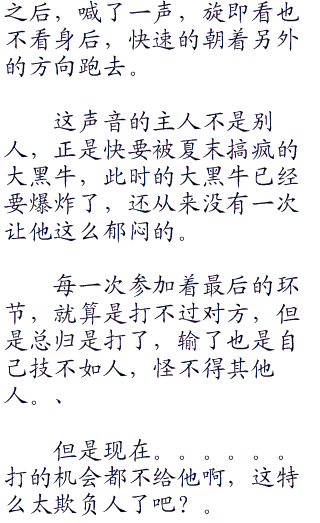 之后，喊了一声，旋即看也
不看身后，快速的朝着另外
的方向跑去。
这声音的主人不是别
人，正是快要被夏末搞疯的
大黑牛，此时的大黑牛已经
要爆炸了，还从来没有一次
让他这么郁闷的。
每一次参加着最后的环
节，就算是打不过对方，但
是总归是打了，输了也是自
己技不如人，怪不得其他
人。、
但是现在。。。。。。
打的机会都不给他啊，这特
么太欺负人了吧？。